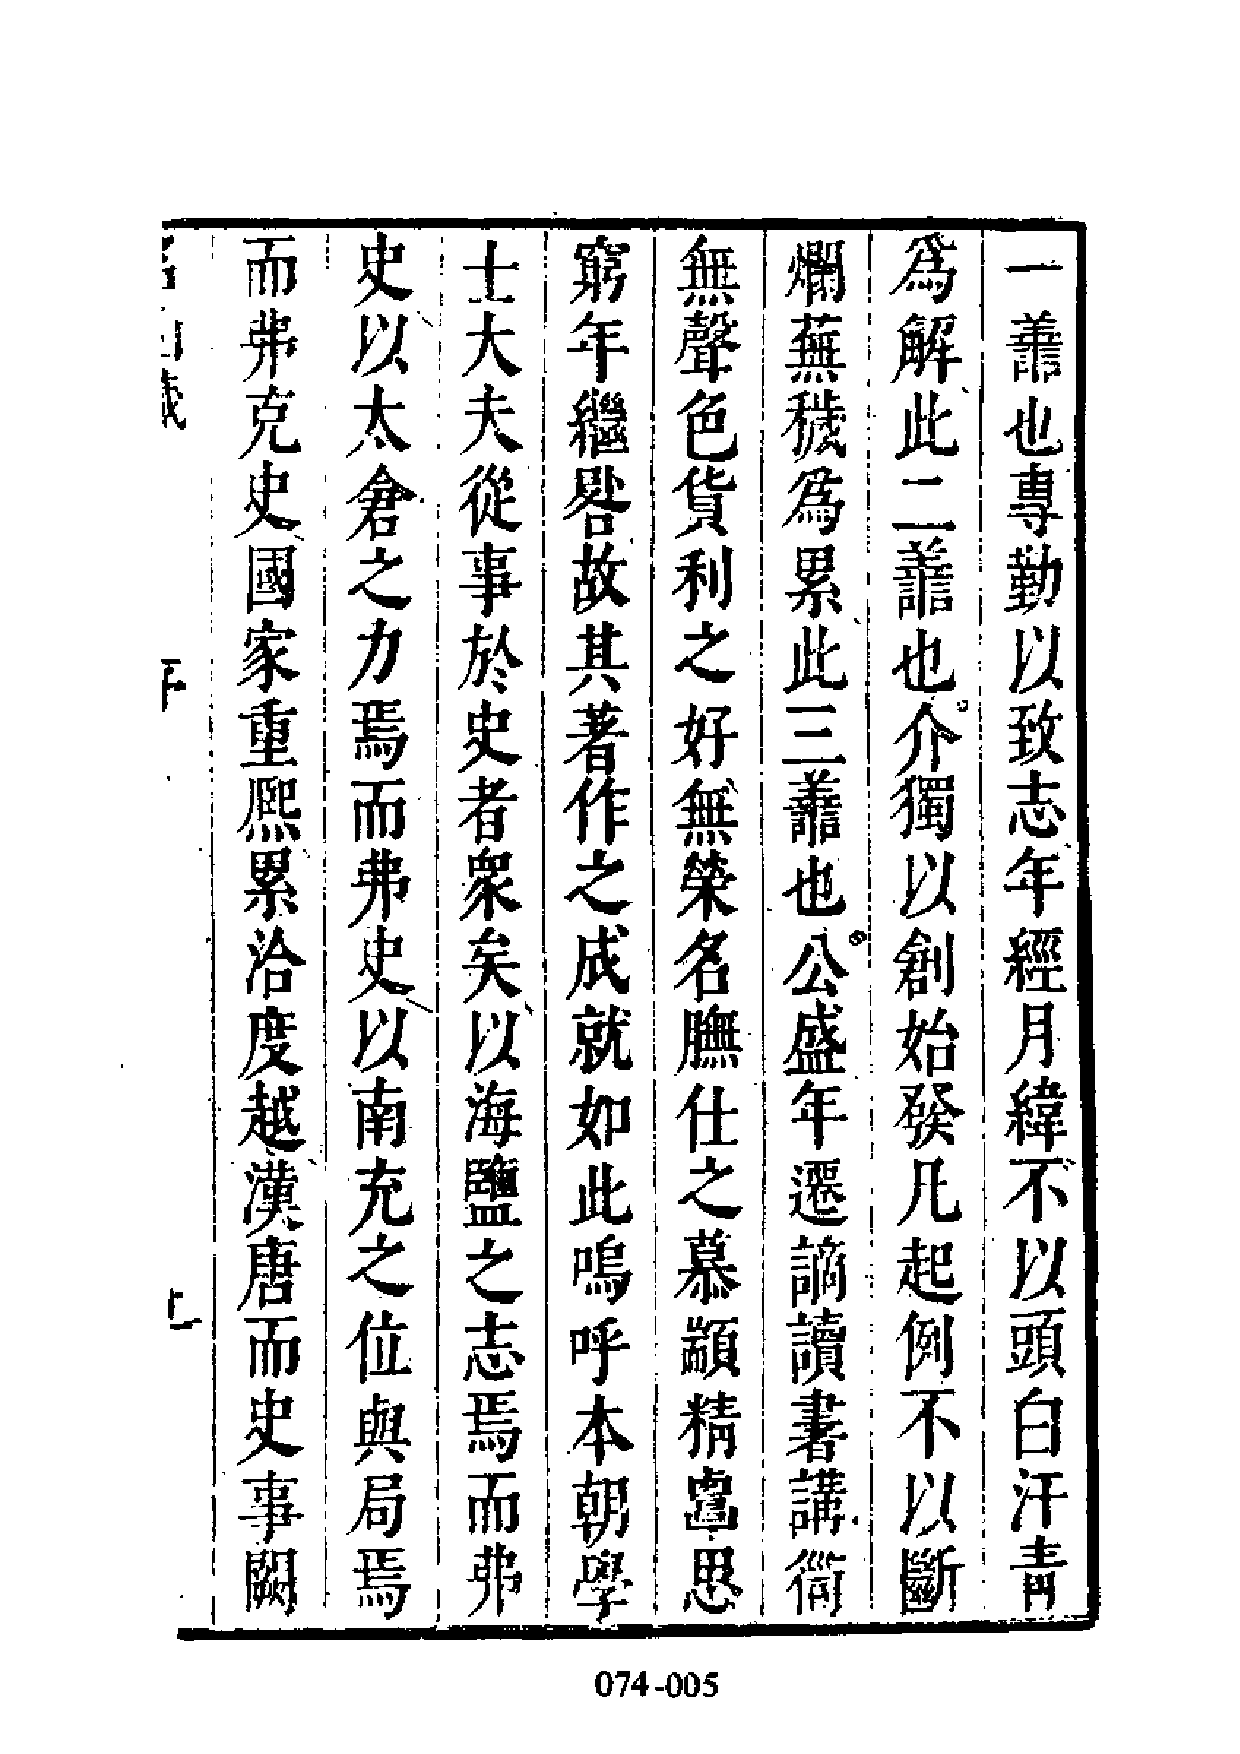 一譱也專勤以致志年經月緯不以頭白汗青
爲解此二譱也介獨以創始發凡起例不以斷
爛蕪穢爲累此三譱也公盛年遷謫讀書講衟
無聲色貨利之好無榮名膴仕之慕顓精覃思
窮年繼晷故其著作之成就如此嗚呼本朝學
士大夫從事於史者衆矣以海鹽之志焉而弗
史以太倉之力焉而弗史以南充之位與局焉
而弗克史國家重熙累洽度越漢唐而史事闕
名山藏 序
074-005